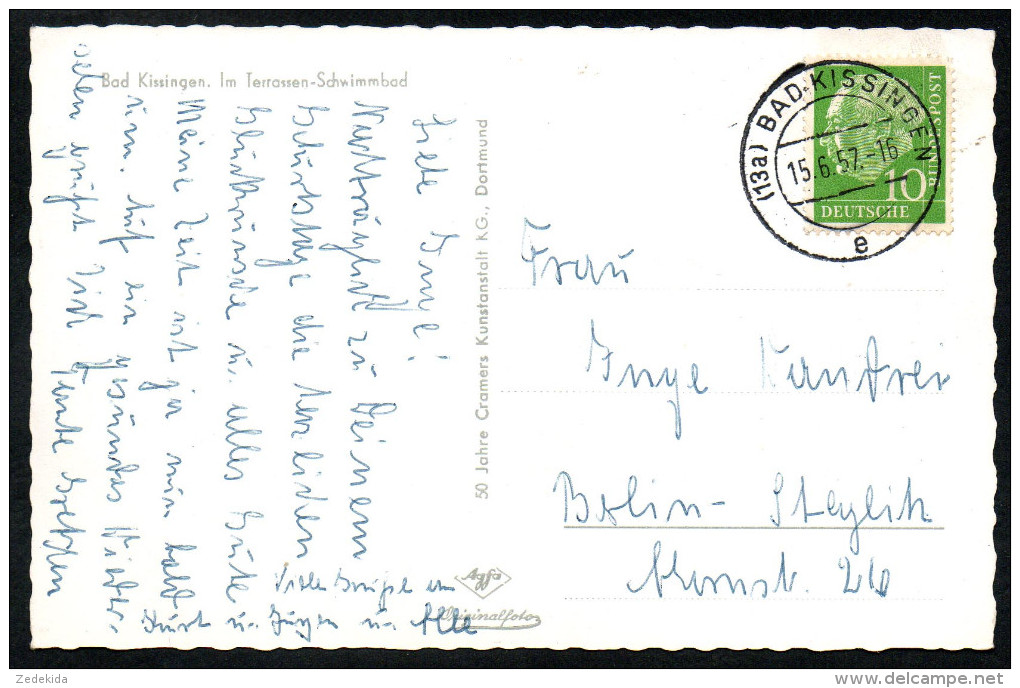 Bad Kissingen. Im Terrassen-Schwimmbad
Liebe Inge!
Nachträglich zu Deinem
Geburtstage die herzlichen
Glückwünsche u. alles Gute
Meine Zeit ist ja nun bald
um. Auf ein gesundes Wieder-
sehen grüßt Dich Tante Gretchen
Viele Grüße an
Kurt u. Jürgen u. Alle
50 Jahre Cramers Kunstanstalt KG., Dortmund
Agfa
Originalfoto
(13a) BAD KISSINGEN
15.6.57.-16
e
10
DEUTSCHE
BUNDESPOST
Frau
Inge
Berlin-Steglitz
26
© Zedekida
delcampe.net